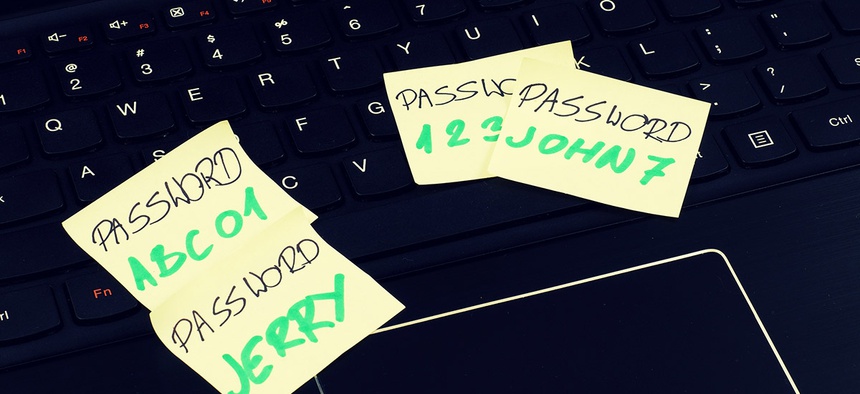 F1
F2
F3
F4
@
2
#
3
$
4
%
5
6
7
Q
W
E
R
T
Y
U
I
O
A
F
G
K
L
:
;
"
'
C
V
>
.
?
/
Ctrl
Fn
PASSW
123
PASSWORD
JOHN7
PASSWORD
ABC01
PASSWORD
JERRY